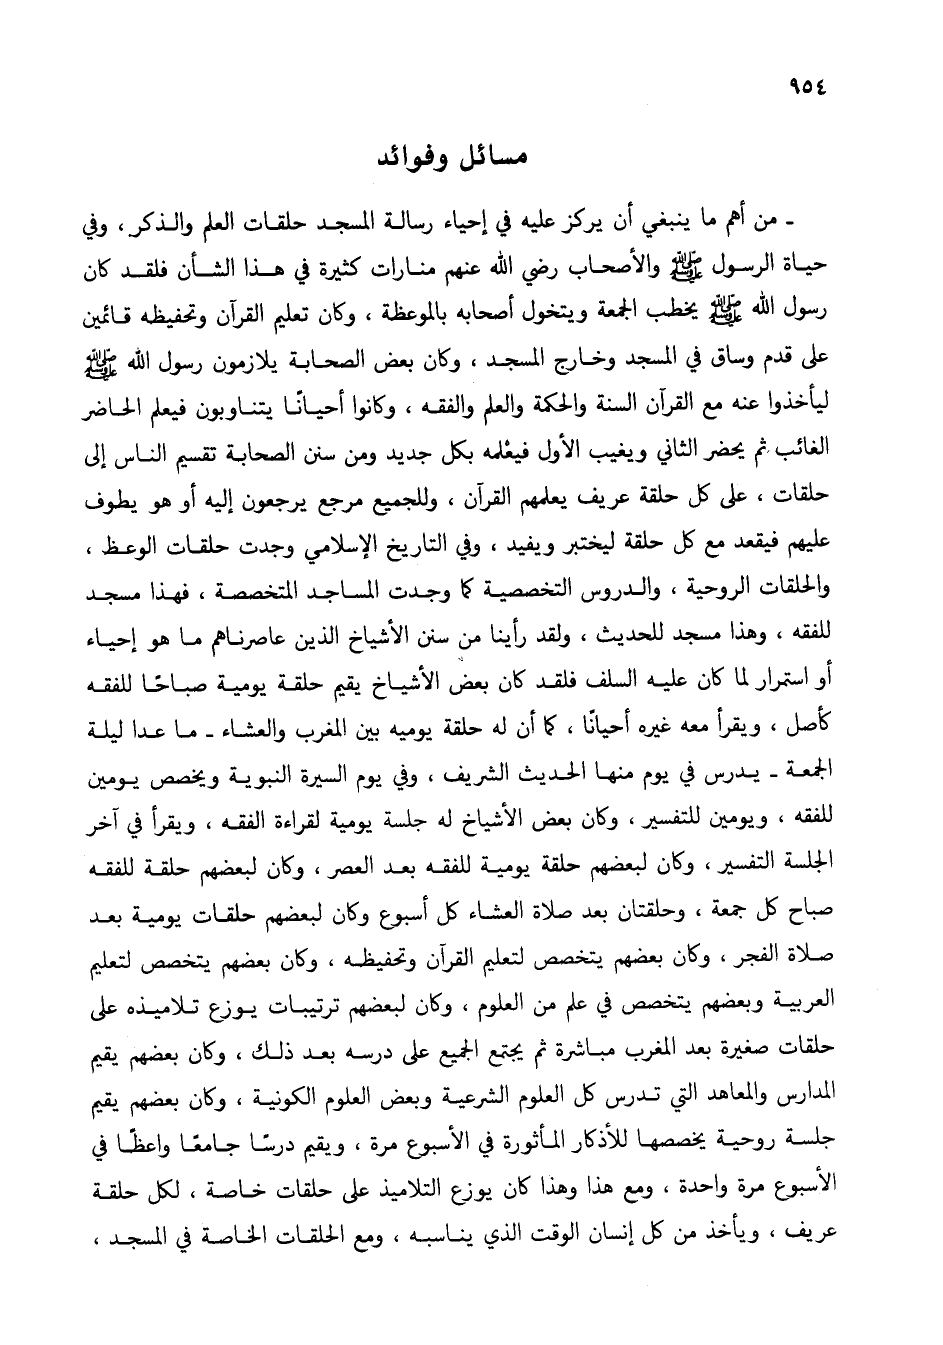 ٩٥٤
مسائل وفوائد
ـ من أهم ما ينبغي أن يركز عليه في إحياء رسالة المسجد حلقات العلم والذكر ، وفي
حياة الرسول ﷺ والأصحاب رضي الله عنهم منارات كثيرة في هذا الشأن فلقد كان
رسول الله ﷺ يخطب الجمعة ويتخول أصحابه بالموعظة ، وكان تعليم القرآن وتحفيظه قائمين
على قدم وساق في المسجد وخارج المسجد ، وكان بعض الصحابة يلازمون رسول الله ﷺ
ليأخذوا عنه مع القرآن السنة والحكمة والعلم والفقه ، وكانوا أحيانًا يتناوبون فيعلم الحاضر
الغائب ثم يحضر الثاني ويغيب الأول فيعْلمه بكل جديد ومن سنن الصحابة تقسيم الناس إلى
حلقات ، على كل حلقة عريف يعلمهم القرآن ، وللجميع مرجع يرجعون إليه أو هو يطوف
عليهم فيقعد مع كل حلقة ليختبر ويفيد ، وفي التاريخ الإسلامي وجدت حلقات الوعظ ،
والحلقات الروحية ، والدروس التخصصية كما وجدت المساجد المتخصصة ، فهذا مسجد
للفقه ، وهذا مسجد للحديث ، ولقد رأينا من سنن الأشياخ الذين عاصرناهم ما هو إحياء
أو استمرار لما كان عليه السلف فلقد كان بعض الأشياخ يقيم حلقة يومية صباحًا للفقه
كأصل ، ويقرأ معه غيره أحيانًا ، كما أن له حلقة يوميه بين المغرب والعشاء ـ ما عدا ليلة
الجمعة ـ يدرس في يوم منها الحديث الشريف ، وفي يوم السيرة النبوية ويخصص يومين
للفقه ، ويومين للتفسير ، وكان بعض الأشياخ له جلسة يومية لقراءة الفقه ، ويقرأ في آخر
الجلسة التفسير ، وكان لبعضهم حلقة يومية للفقه بعد العصر ، وكان لبعضهم حلقة للفقه
صباح كل جمعة ، وحلقتان بعد صلاة العشاء كل أسبوع وكان لبعضهم حلقات يومية بعد
صلاة الفجر ، وكان بعضهم يتخصص لتعليم القرآن وتحفيظه ، وكان بعضهم يتخصص لتعليم
العربية وبعضهم يتخصص في علم من العلوم ، وكان لبعضهم ترتيبات يوزع تلاميذه على
حلقات صغيرة بعد المغرب مباشرة ثم يجتمع الجميع على درسه بعد ذلك ، وكان بعضهم يقيم
المدارس والمعاهد التي تدرس كل العلوم الشرعية وبعض العلوم الكونية ، وكان بعضهم يقيم
جلسة روحية يخصصها للأذكار المأثورة في الأسبوع مرة ، ويقيم درسًا جامعًا واعظًا في
الأسبوع مرة واحدة ، ومع هذا وهذا كان يوزع التلاميذ على حلقات خاصة ، لكل حلقة
عريف ، ويأخذ من كل إنسان الوقت الذي يناسبه ، ومع الحلقات الخاصة في المسجد ،